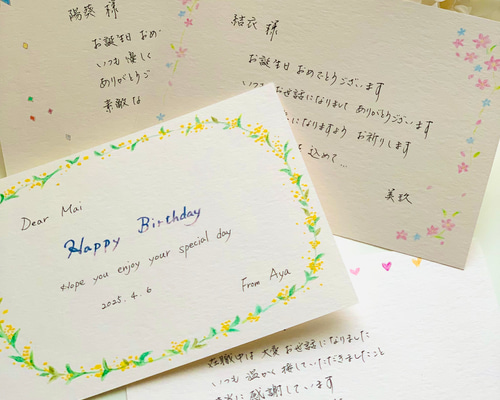 陽葵 様
お誕生日 おめ
いつも 優しく
ありがとうご
素敵な
結衣 様
お誕生日 おめでとうございます
いつも お世話になりまして ありがとうございます
になりますよう お祈りします
込めて…
美玖
Dear Mai
Happy Birthday
Hope you enjoy your special day
2025. 4. 6
From Aya
在職中は 大変 お世話になりました
いつも 温かく 接していただきましたこと
に 感謝しています